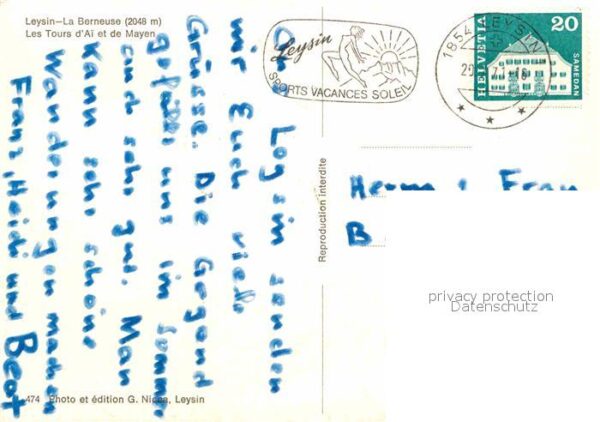 Leysin—La Berneuse (2048 m)
Les Tours d'Aï et de Mayen
Leysin
SPORTS VACANCES SOLEIL
1854 LEYSIN
HELVETIA
20
SAMEDAN
Aus
Leysin senden
wir Euch viele
Grüsse. Die Gegend
gefällt uns im Sommer
auch sehr gut. Man
kann sehr schöne
Wanderungen machen
Franz, Heidi und Beat
Reproduction interdite
Herrn + Frau
B
privacy protection
Datenschutz
474 Photo et édition G. Nicca, Leysin